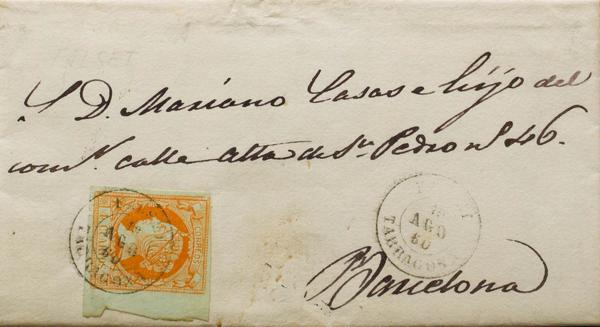 S. D. Mariano Casas e hijo del
comº. calle alta de Sn. Pedro nº 46.
CORREOS
AGO
60
TARRAGONA
Barcelona